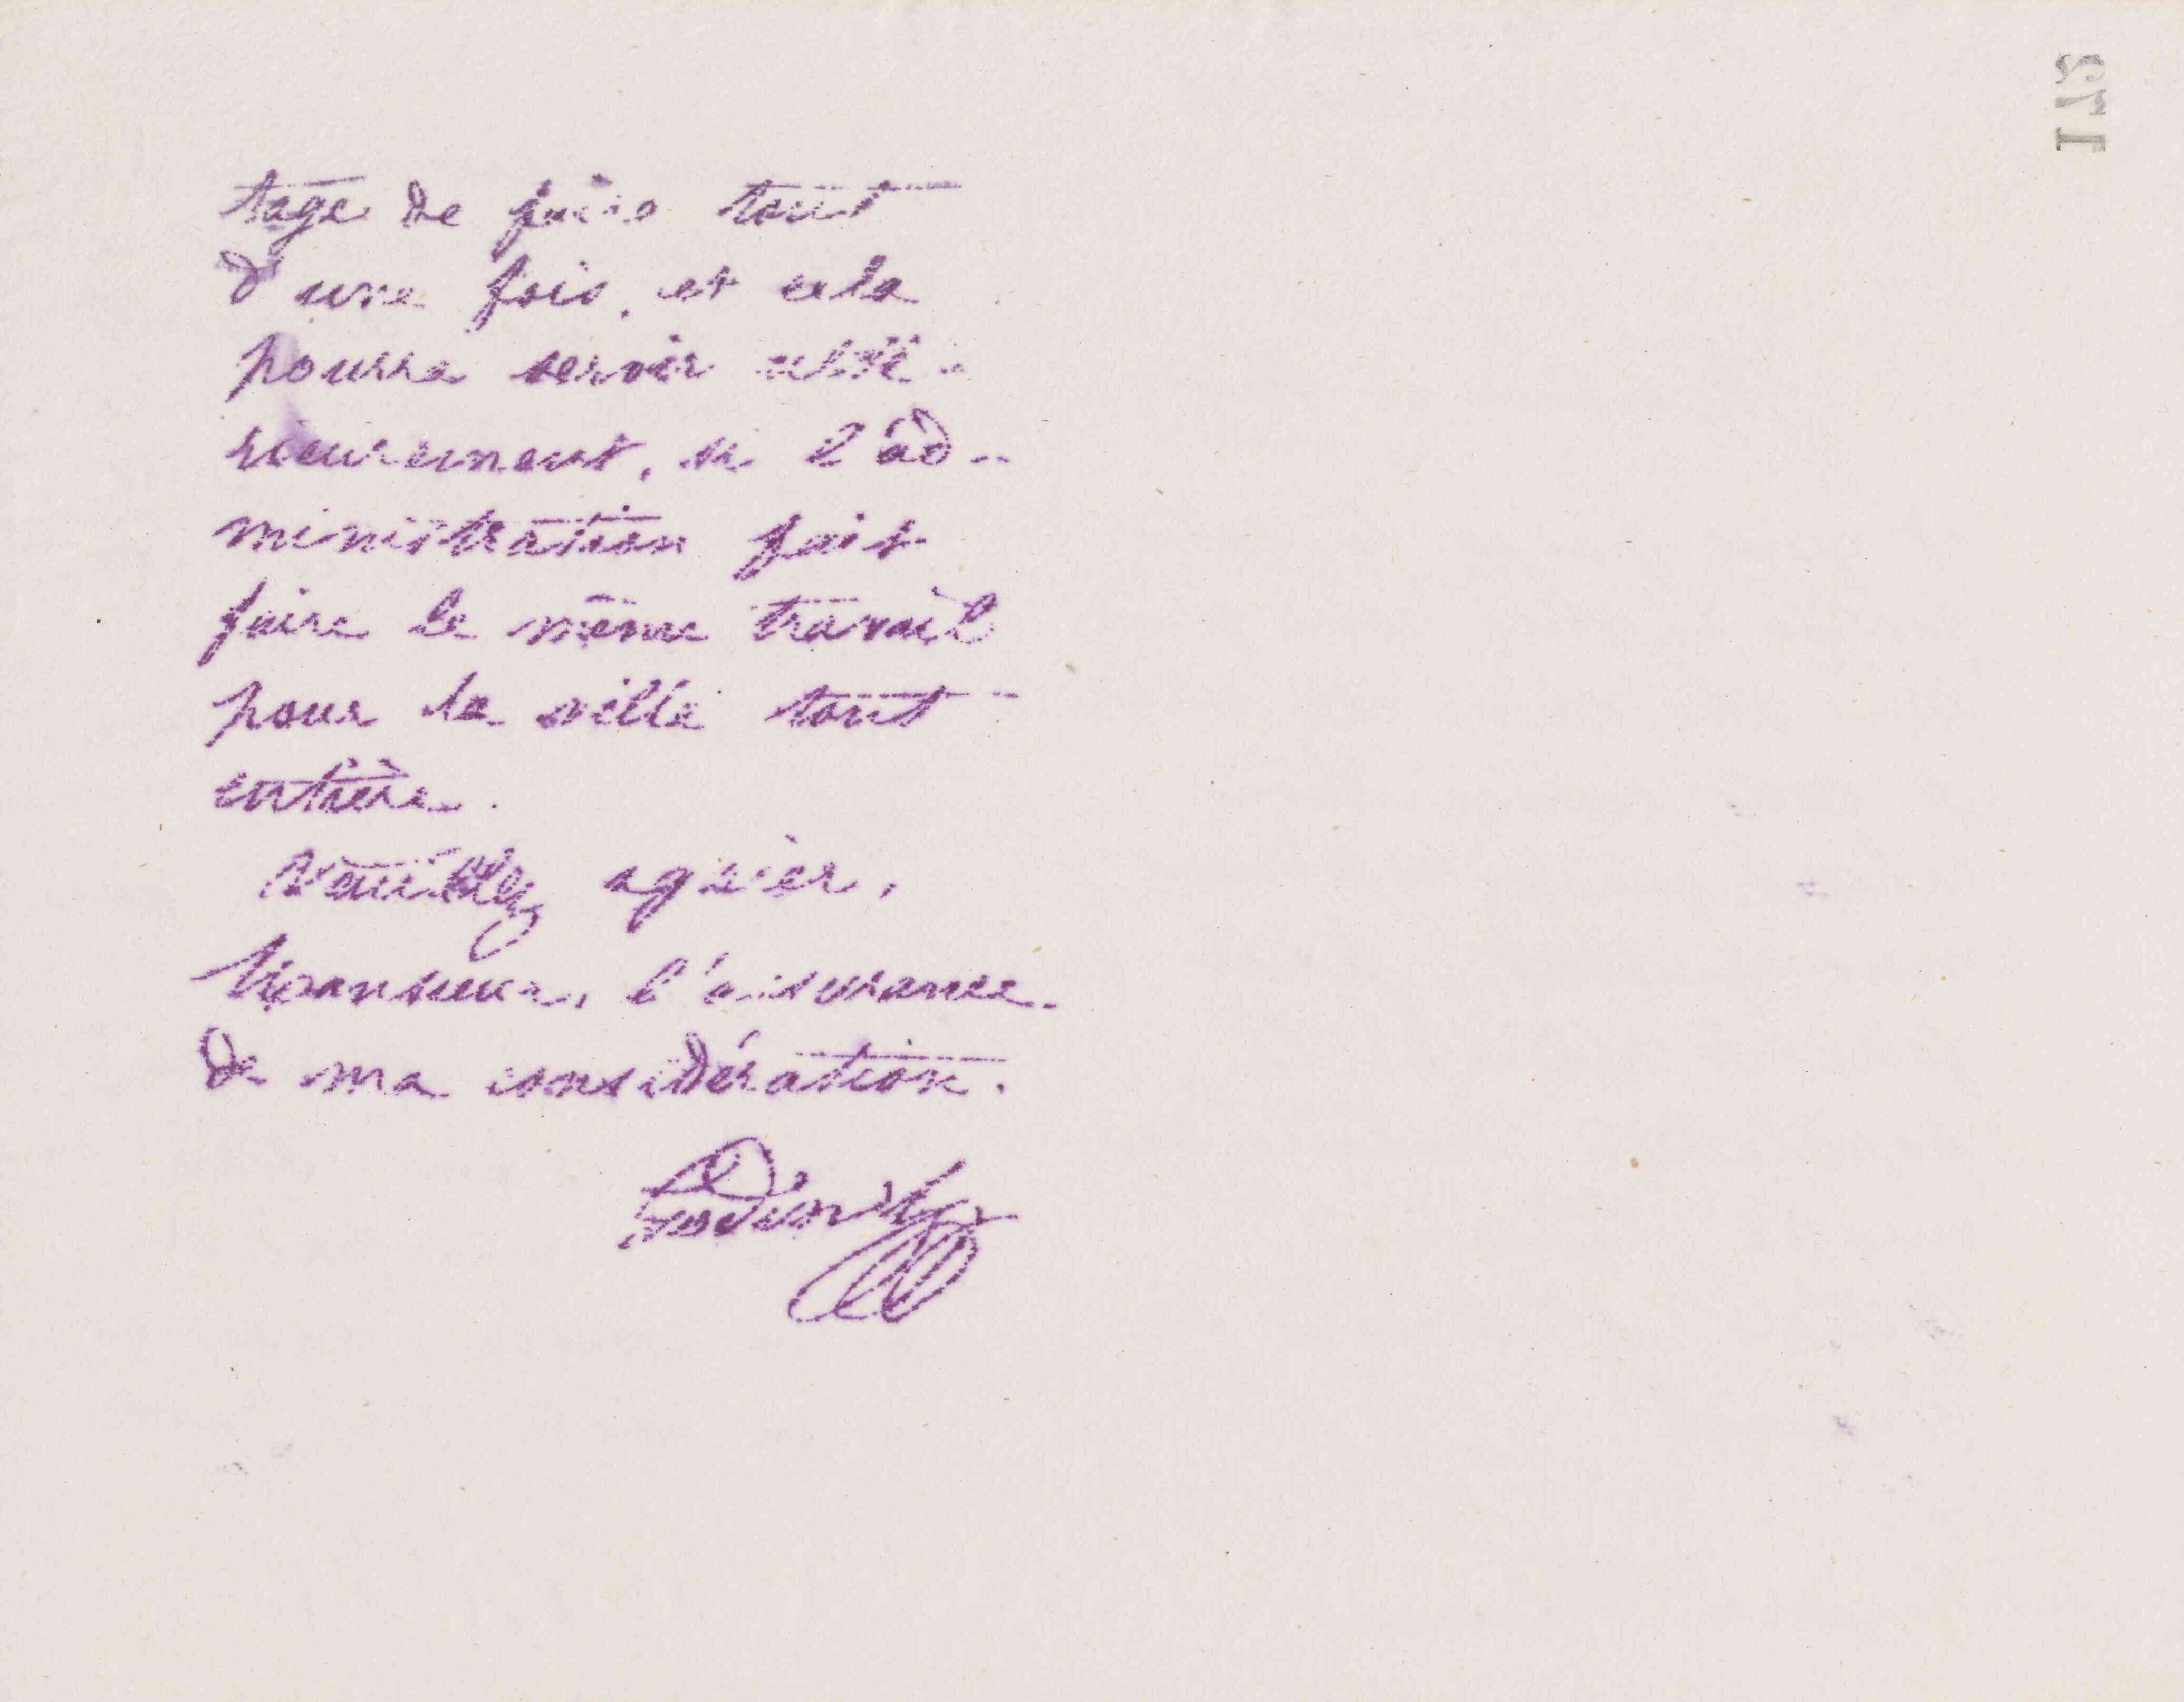 tage de faire tout
d'une fois, et cela
pourra servir ulté-
rieurement, si l'ad-
ministration fait
faire le même travail
pour la ville tout
entière.
Veuillez agréer,
Monsieur, l'assurance
de ma considération.
Godin
173